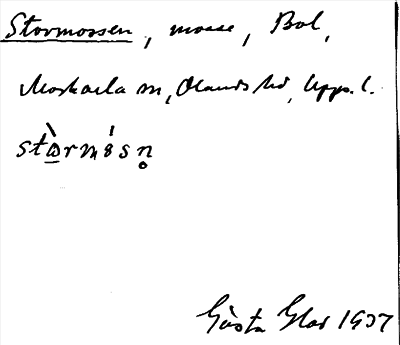 Stormossen, mosse, Bol,
Morkarla sn, Olands hd, Upps. l.
stòrmósn̥
Gösta Glas 1937